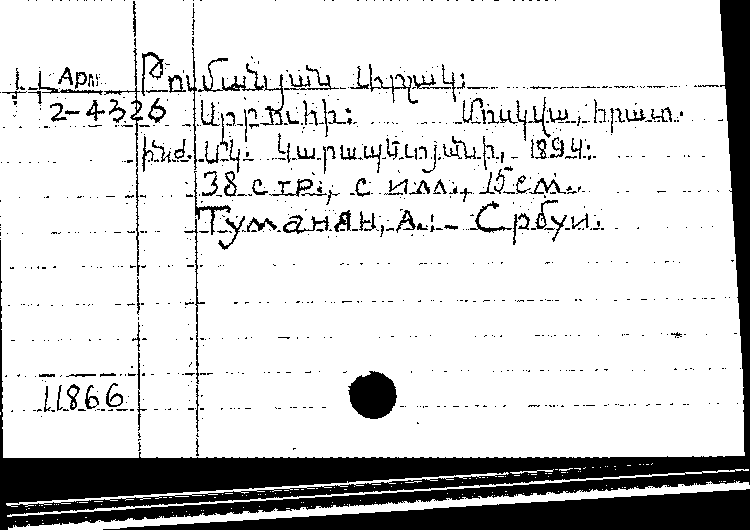 Арм Թումանյան Արշակ։
2-4326 Սրբուհի։ Մոսկվա, հրատ.
ինժ. Մկ. Կարապետյանի, 1894։
38 стр., с илл., 15 см.
Туманян, А.:- Србуи.
11866